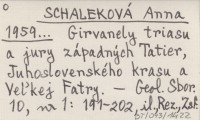 SCHALEKOVÁ Anna
1959... Girvanely triasu
a jury západných Tatier,
Juhoslovenského krasu a
Veľkej Fatry. – Geol. Sbor.
10, nr 1: 191-202, il., Rez., Zsf.